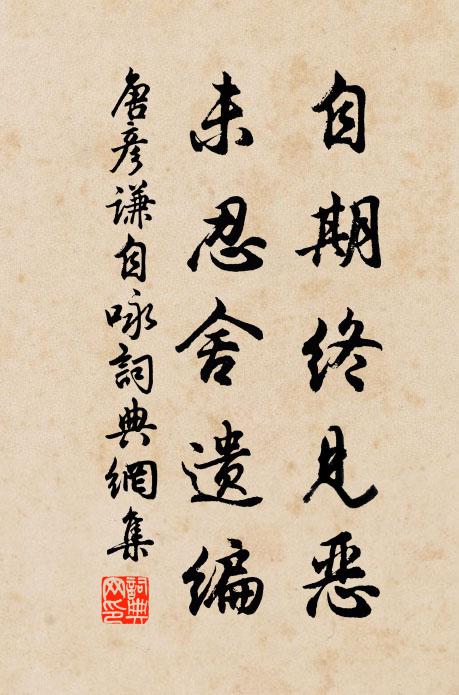 自期终见恶
未忍舍遗编
唐彦谦自咏詞典網集
詞典
网印